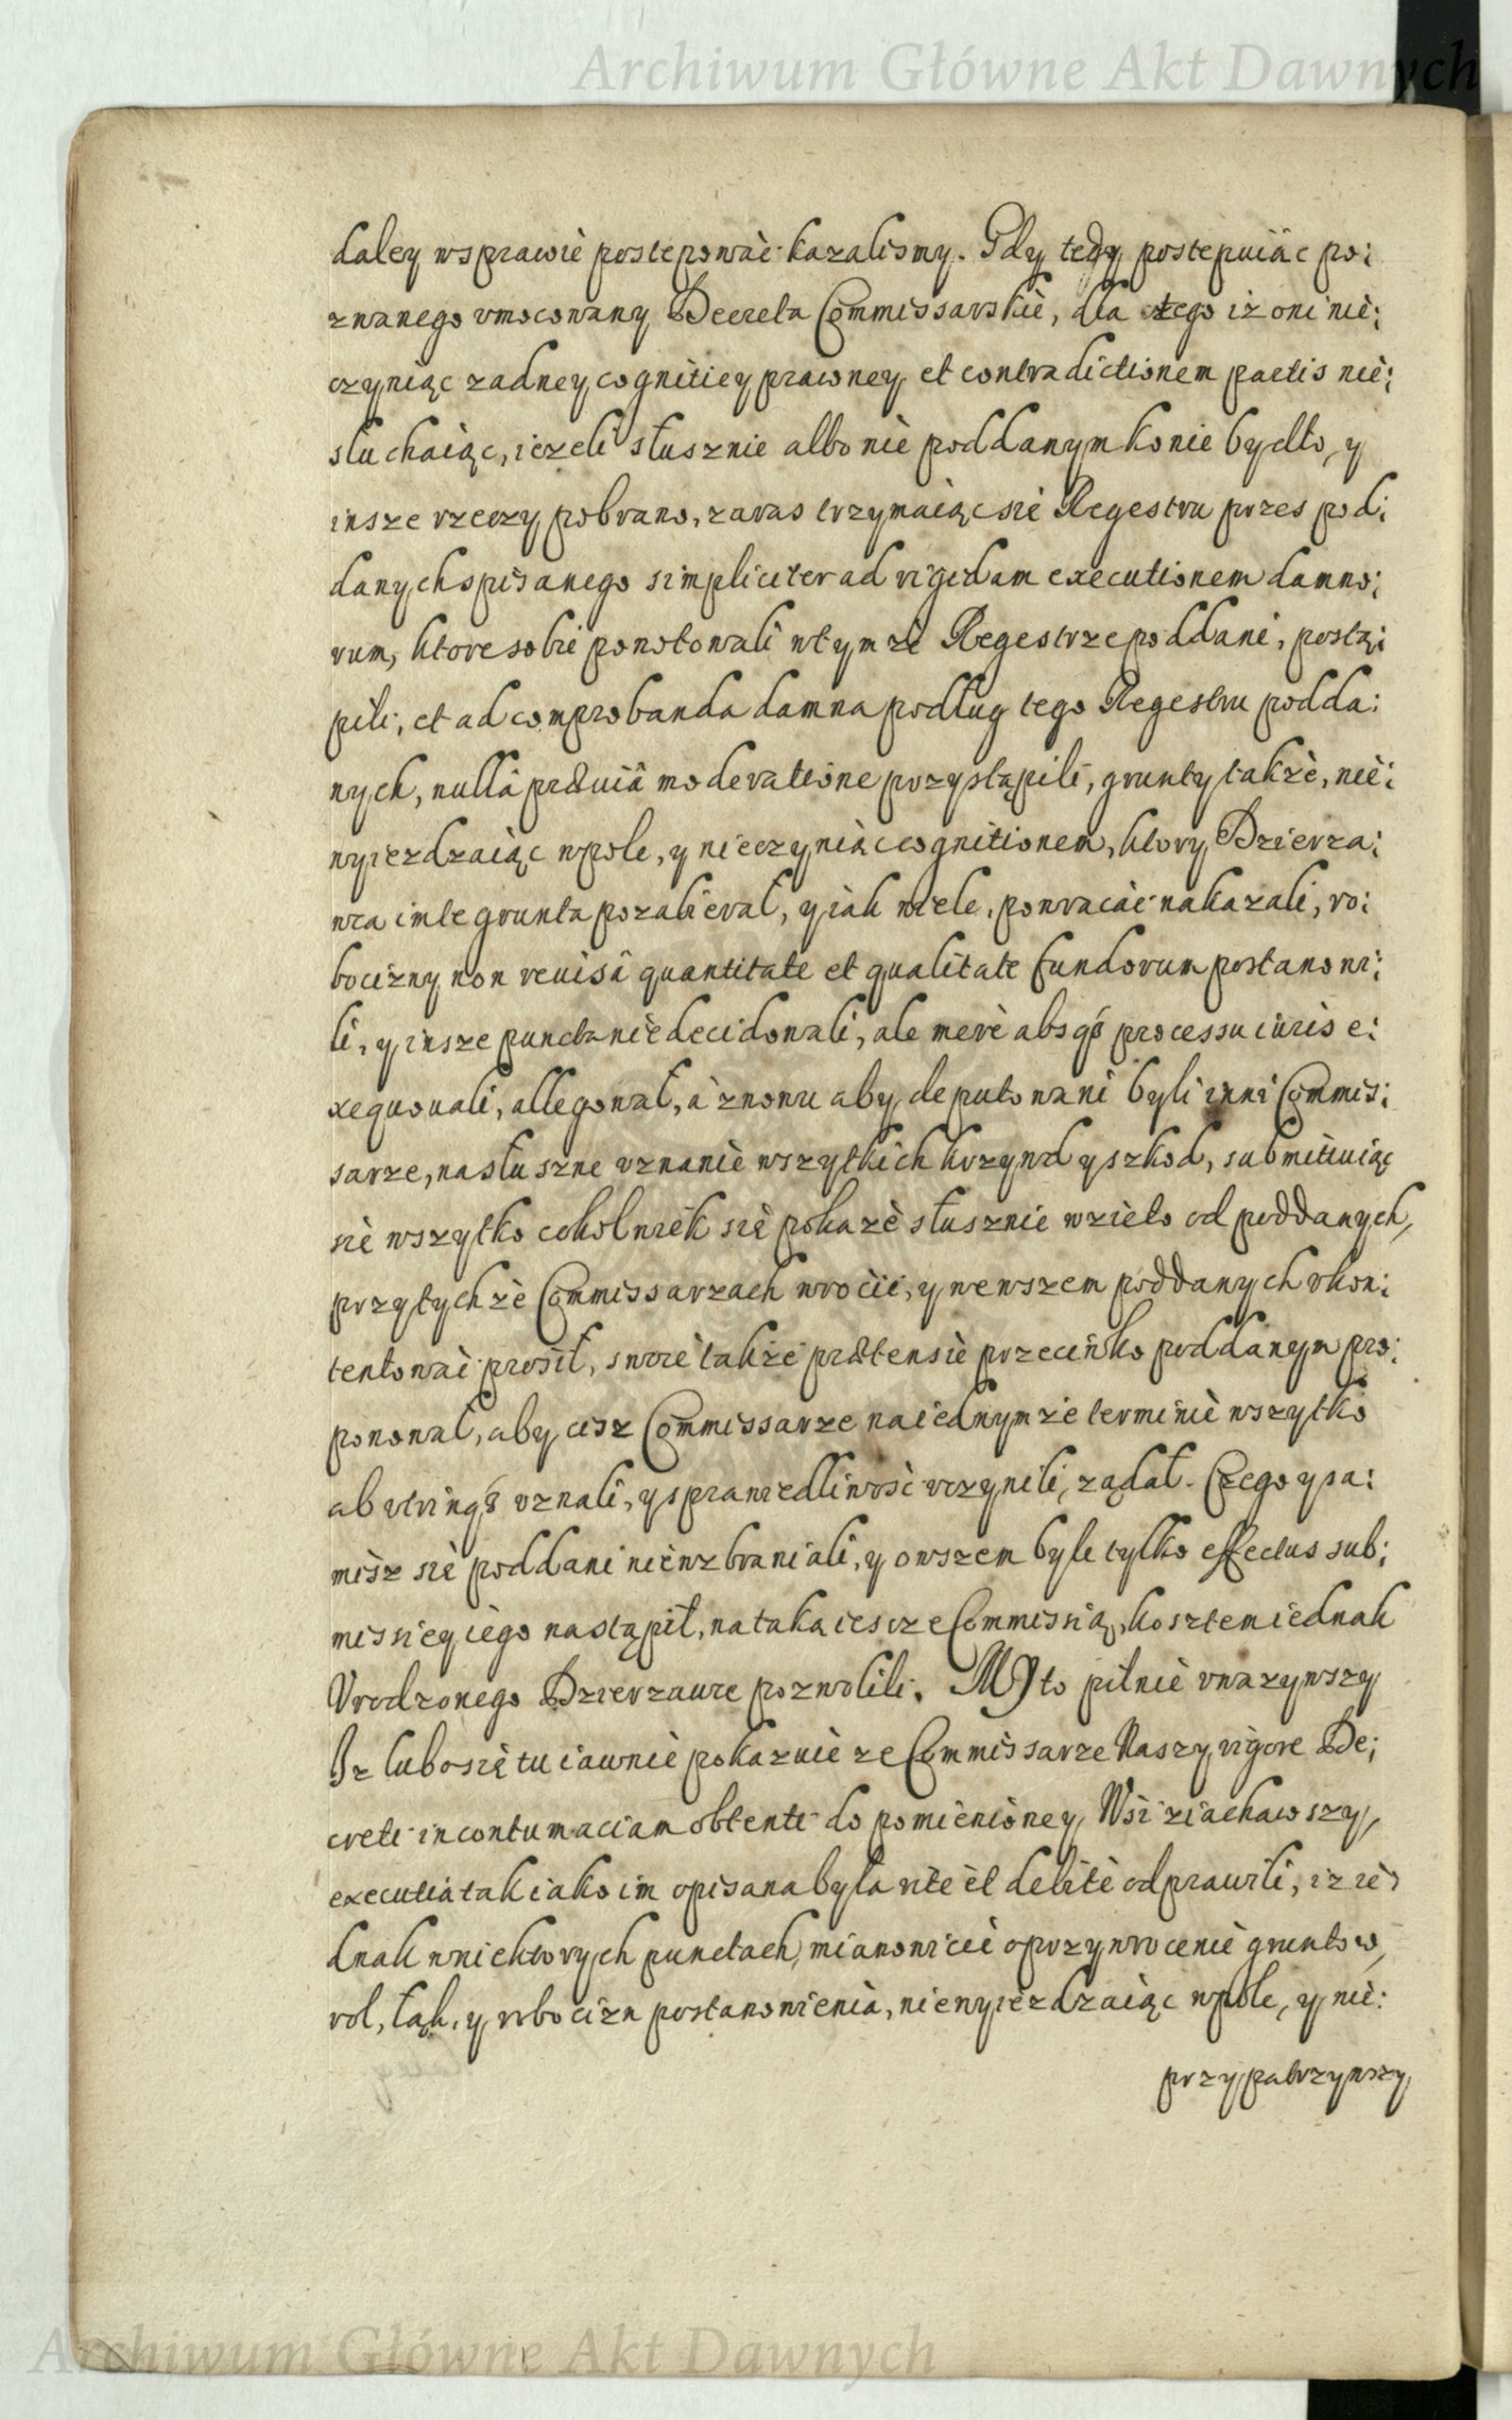 Archiwum Główne Akt Dawnych
daley wsprawiè postepowàć kazalismy. Gdy tedy postepuiąc po:
zwanego vmocowany Decreta Commissarskiè, dla tego iż oni niè:
czyniąc zadney cognitiey prawney et contradictionem partis niè:
słuchaiąc, iezeli słusznie albo niè poddanym konie bydło, y
insze rzeczy pobrano, zaras trzymaiąc siè Regestru przes pod:
danych spisanego simpliciter ad rigidam executionem damno:
rum, ktore sobie ponotowali wtymże Regestrze poddani, postą:
pili, et ad comprobanda damna podług tego Regestru podda:
nych, nullâ præuiâ moderatione przystąpili, grunty także, niè:
wyiezdzaiąc wpole, y nieczyniąc cognitionem, ktory Dzierza:
wca imte grunta pozabierał, y iàk wiele, powracàć nakazali, ro:
bocizny non reuisâ quantitate et qualitate fundorum postanowi:
li, y insze puncta niè decidowali, ale merè absq́ processu iuris e:
xequowali, allegował, à znowu aby deputowani byli inni Commis:
sarze, na słuszne vznaniè wszytkich krzywd y szkod, submituiąc
siè wszytko cokolwiek się pokażè słusznie wzięto od poddanych,
przytychże Commissarzach wrócić, y wewszem poddanych vkon:
tentowàć prosił, swoiè także prætensiè przeciwko poddanym pro:
ponował, aby cisz Commissarze na iednymże terminiè wszytko
ab vtrinq́ vznali, y sprawiedliwość vczynili, żądał. Czego y sa:
misz siè poddani niè wzbraniali, y owszem byle tylko effectus sub:
missiey iègo nastąpił, na taką iescze Commissią, kosztem iednak
Vrodzonego Dzierzawce pozwolili. MY to pilniè vważywszy
Iz lubo się tu iawniè pokazuiè ze Commissarze Naszy vigore De:
creti in contumaciam obtenti do pomienióney Wsi ziachawszy,
executią tak iako im opisana była ritè èt debitè odprawili, iz ie:
dnak wniektorych punctach, mianowicié oprzywroceniè gruntow,
rol, łąk, y robocizn postanowienià, niewyieżdzaiąc wpole, y niè:
przypatrzywszy
Archiwum Główne Akt Dawnych